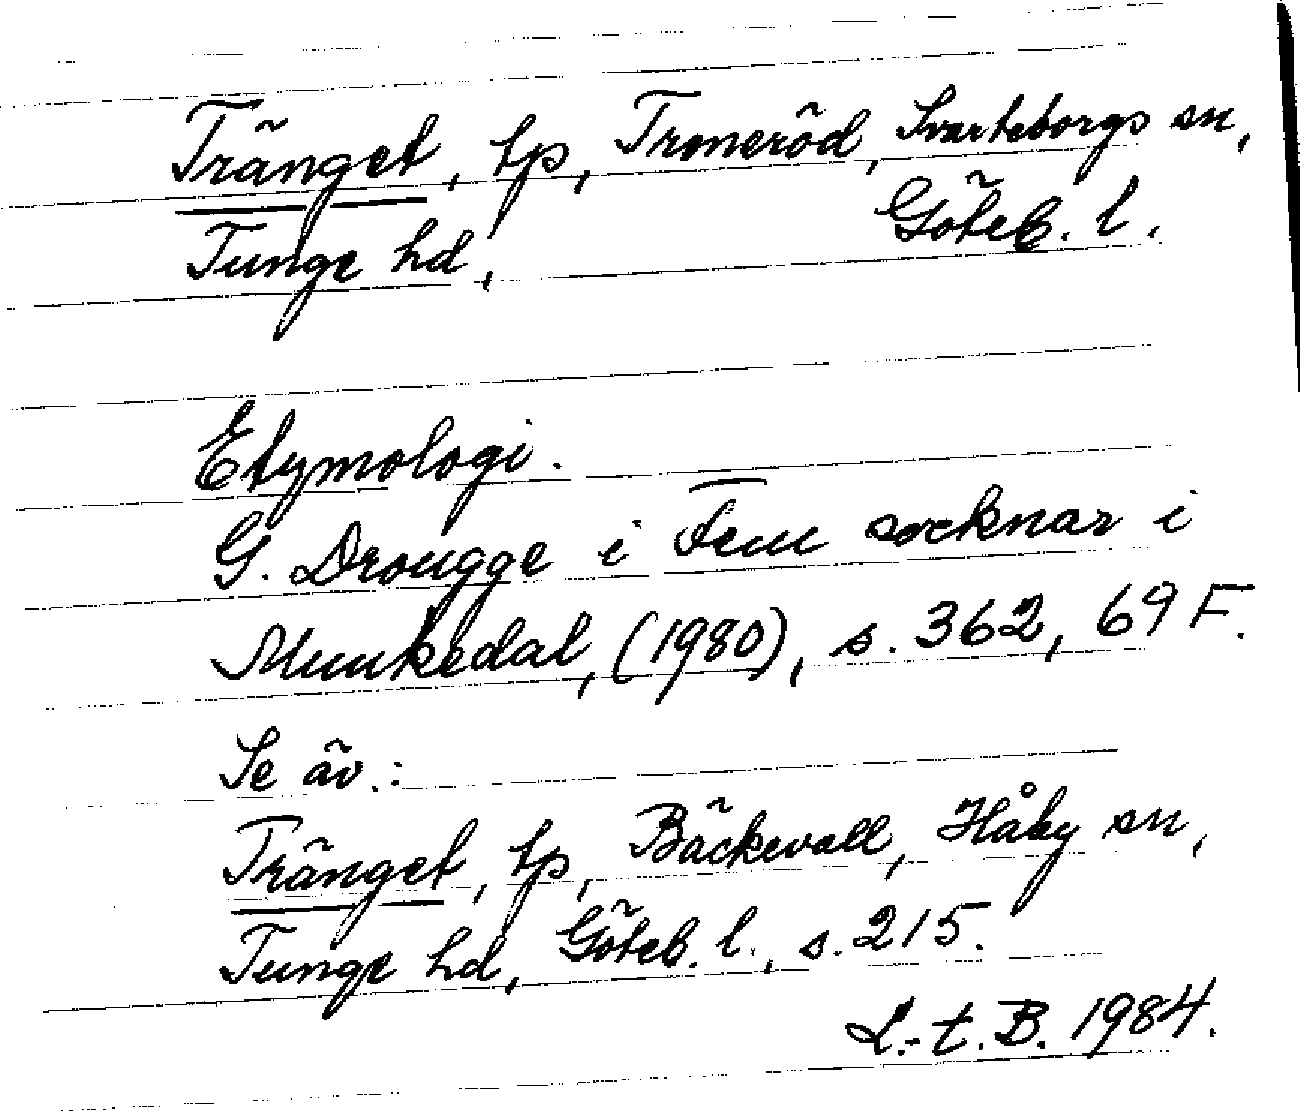 Tränget, tp, Troneröd, Svarteborgs sn,
Tunge hd, Göteb. l.
Etymologi.
G. Drougge i Fem socknar i
Munkedal, (1980), s. 362, 69 F.
Se äv.:
Tränget, tp, Bäckevall, Håby sn,
Tunge hd, Göteb. l., s. 215.
L.-t. B. 1984.